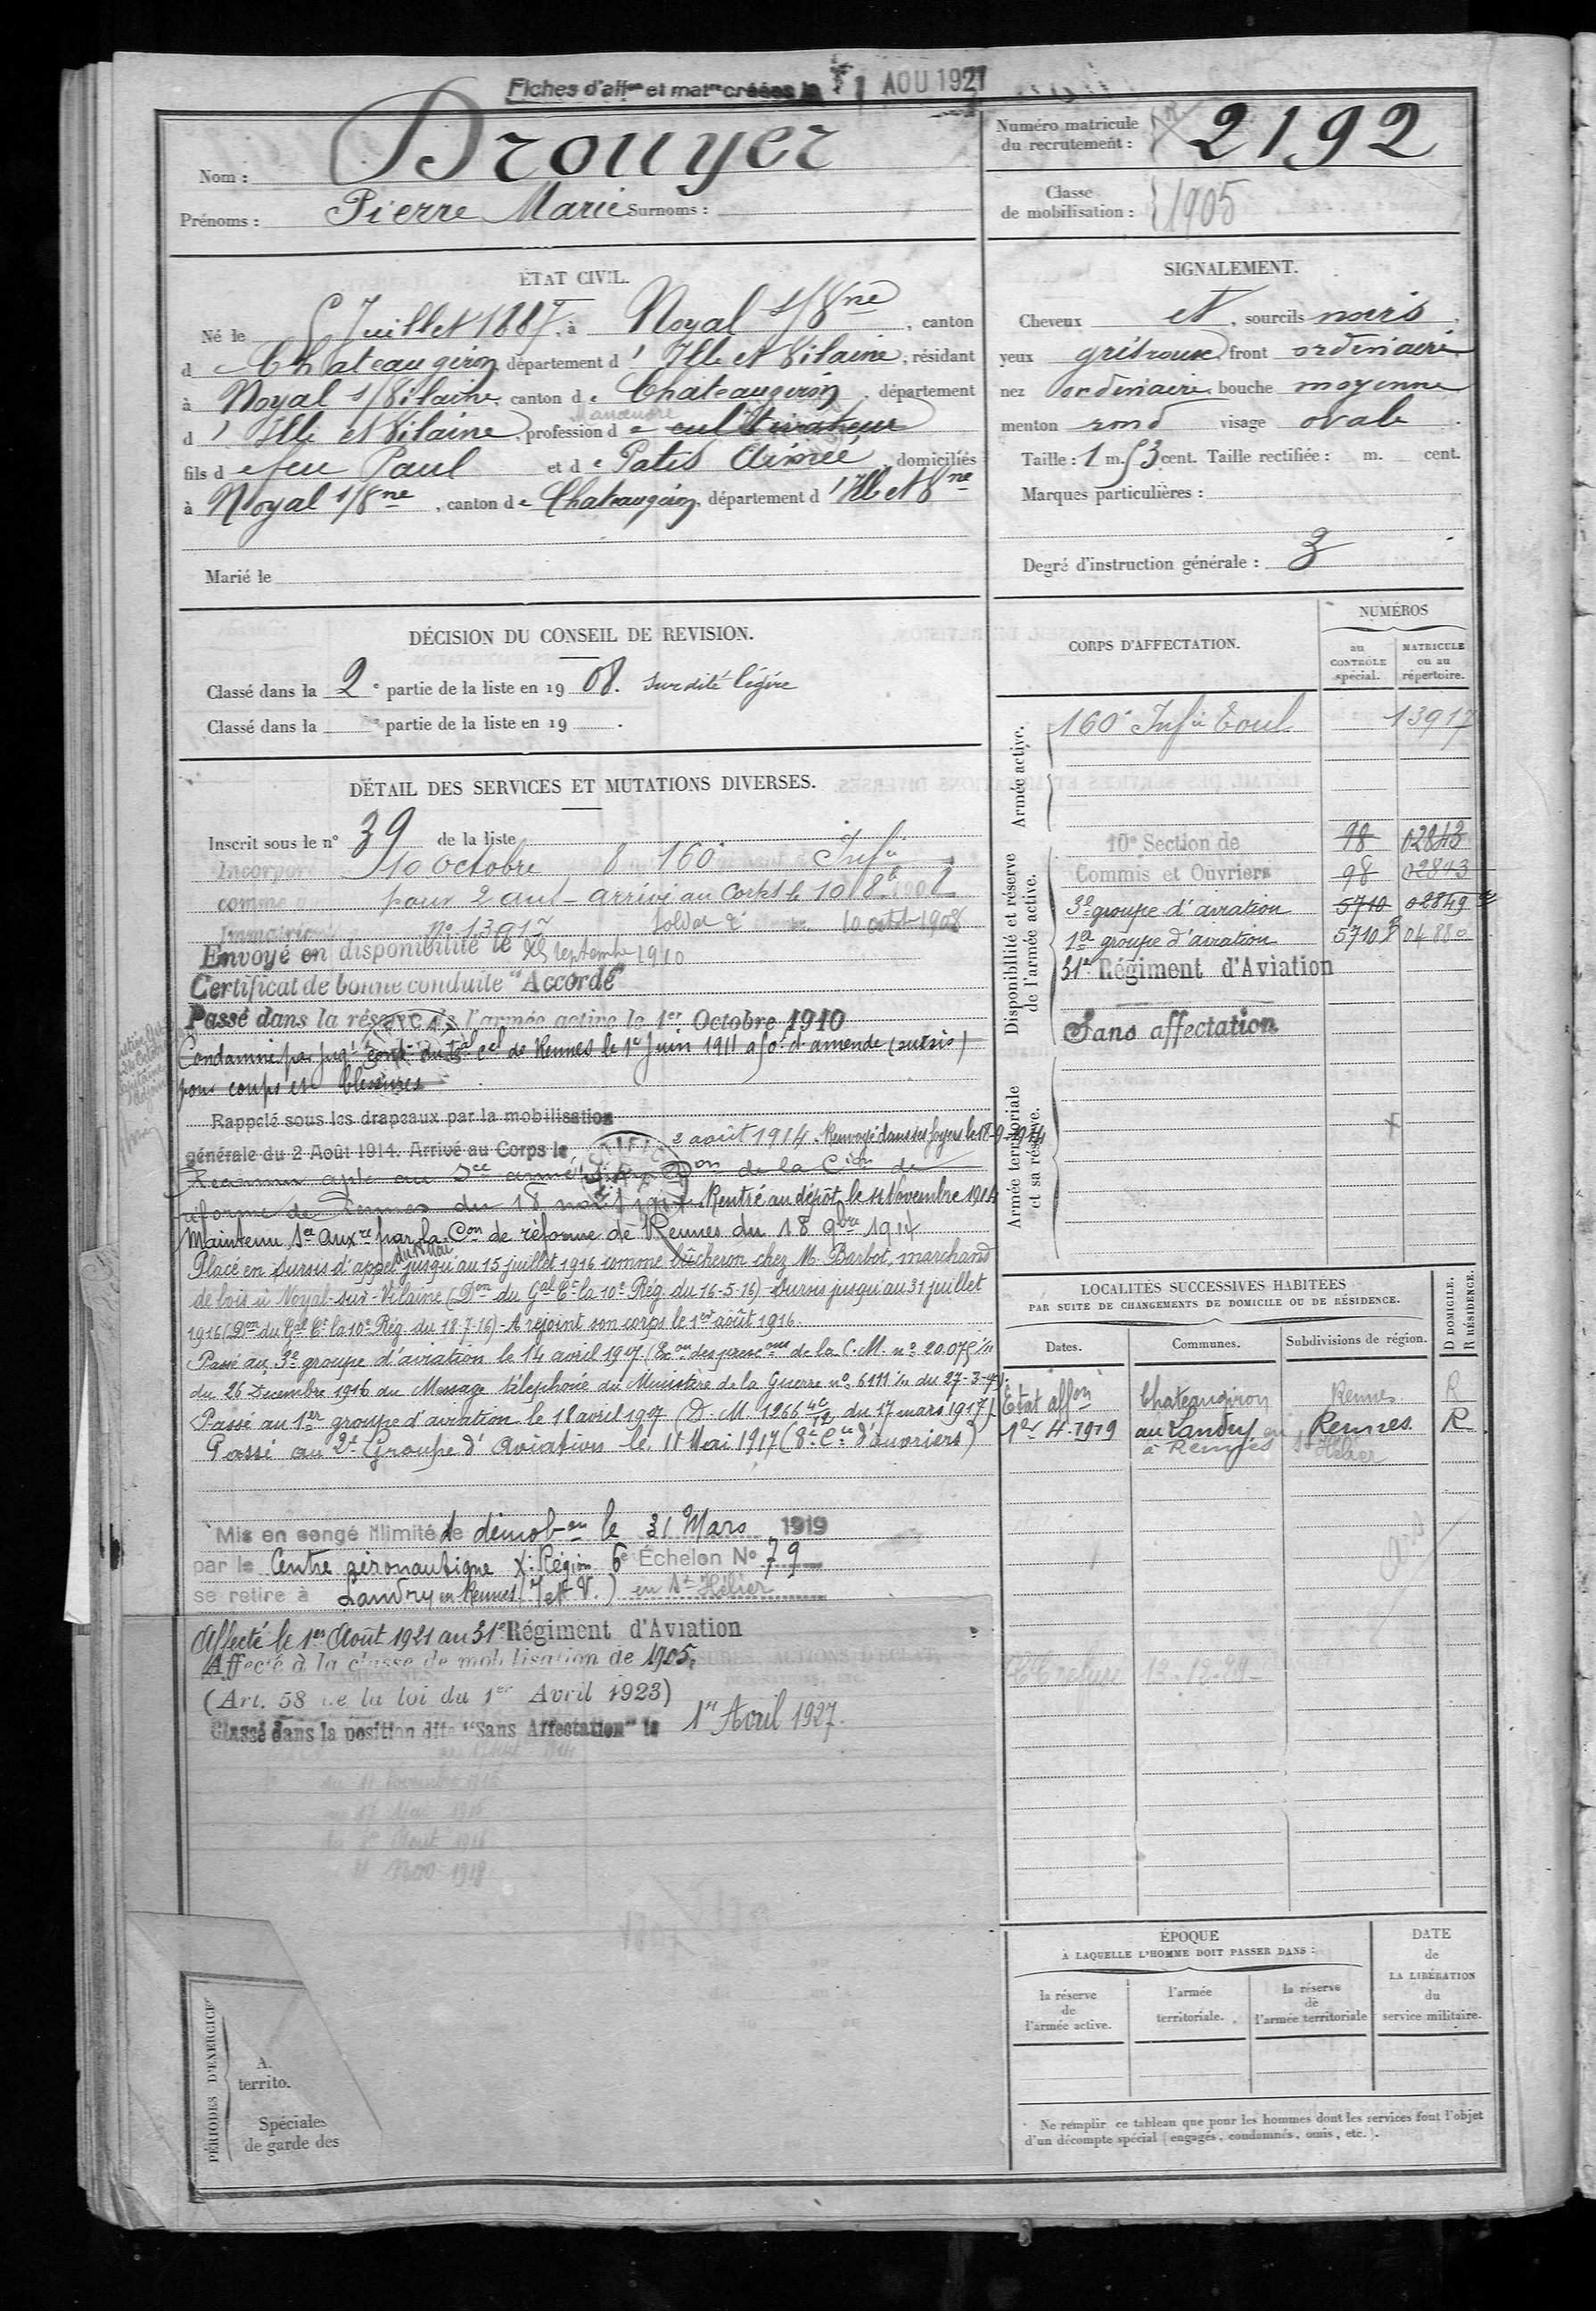 Fiches d'aff<sup>on</sup> et mat<sup>re</sup> créées le 1 AOU 1927
Nom : Drouyer
Prénoms : Pierre Marie Surnoms :
Numéro matricule du recrutement : 2192
Classe de mobilisation : 1905
ÉTAT CIVIL.
Né le 5 Juillet 1887, à Noyal s/Vne, canton
d Chateaugiron, département d' Ille et Vilaine, résidant
à Noyal s/Vilaine, canton de Chateaugiron, département
d' Ille et Vilaine, profession de cultivateur
fils de feu Paul et de Patis Aimée, domiciliés
à Noyal s/Vne, canton de Chateaugiron, département d' Ille et Vne
Marié le
SIGNALEMENT.
Cheveux et, sourcils noirs,
yeux gris roux, front ordinaire
nez ordinaire, bouche moyenne
menton rond visage ovale.
Taille : 1 m. 53 cent. Taille rectifiée : m. cent.
Marques particulières :
Degré d'instruction générale : 3
DÉCISION DU CONSEIL DE REVISION.
Classé dans la 2e partie de la liste en 1908. Surdité légère
Classé dans la e partie de la liste en 19 .
DÉTAIL DES SERVICES ET MUTATIONS DIVERSES.
Inscrit sous le n° 39 de la liste
Incorpor 10 octobre 8 160e Infie
comme pour 2 ans - arrivé au Corps le 10 8bre 1908
n° 13917 Soldat 2e 10 octob 1908
Envoyé en disponibilité le 25 Septembre 1910
Certificat de bonne conduite "Accordé"
Passé dans la réserve de l'armée active le 1er Octobre 1910
Condamné par jugt cont. du tal cel de Rennes le 1er Juin 1911 à 50f d'amende (sursis)
pour coups et blessures
Rappelé sous les drapeaux par la mobilisation
générale du 2 Août 1914. Arrivé au Corps le 2 août 1914. Renvoyé dans ses foyers le 18-9-1914
Reconnu apte au Sce armé Don de la Cion de
réforme de Rennes du 18 Rentré au dépôt le 12 Novembre 1914
Maintenu Sce auxre par la Con de réforme de Rennes du 18 9bre 1914
Placé en sursis d'appel du 18 Mai jusqu'au 15 juillet 1916 comme bûcheron chez M. Barbot, marchand
de bois à Noyal-sur-Vilaine (Don du Gal Ct la 10e Rég. du 16-5-16) - Sursis jusqu'au 31 juillet
1916 (Don du Gal Ct la 10e Rég. du 18-7-16) - A rejoint son corps le 1er août 1916.
Passé au 3e groupe d'aviation le 14 avril 1917 de la C.M. n° 20.075
du 26 Décembre 1916 du Message téléphoné du Ministère de la Guerre n° 6111 du 27-3-17)
Passé au 1er groupe d'aviation le 18 avril 1917 (D. M. 1266 4c/12 du 17 mars 1917)
Passé au 2e Groupe d'Aviation le 11 Mai 1917 (8e Cie d'ouvriers)
Mis en congé illimité de démobon le 31 Mars 1919
par le Centre aéronautique Xe Région 6e Échelon No 79
se retire à Landry en Rennes (I et V.) en St Hélier
Affecté le 1er Août 1921 au 31e Régiment d'Aviation
Affecté à la classe de mobilisation de 1905.
(Art. 58 de la loi du 1er Avril 1923)
Classé dans la position dite "Sans Affectation" le 1er Avril 1927.
PÉRIODES D'EXERCICES
A.
territo.
Spéciales
de garde des
CORPS D'AFFECTATION.
NUMÉROS
au CONTRÔLE spécial.
MATRICULE ou au répertoire.
Armée active.
160e Infie Toul 13917
Disponibilité et réserve de l'armée active.
10e Section de 98 02843
Commis et Ouvriers 98 02843
3e groupe d'aviation 5710 02849
1er groupe d'aviation 5710 04880
31e Régiment d'Aviation
Sans affectation
Armée territoriale et sa réserve.
LOCALITÉS SUCCESSIVES HABITÉES
PAR SUITE DE CHANGEMENTS DE DOMICILE OU DE RÉSIDENCE.
Dates. Communes. Subdivisions de région. D DOMICILE. R RÉSIDENCE.
Etat affon Chateaugiron Rennes R
1er 4-1919 au Landry en Rennes R
à Rennes St Hélier
13-12-29
ÉPOQUE
À LAQUELLE L'HOMME DOIT PASSER DANS :
la réserve de l'armée active.
l'armée territoriale.
la réserve de l'armée territoriale
DATE de LA LIBÉRATION du service militaire.
Ne remplir ce tableau que pour les hommes dont les services font l'objet
d'un décompte spécial (engagés, condamnés, omis, etc.).